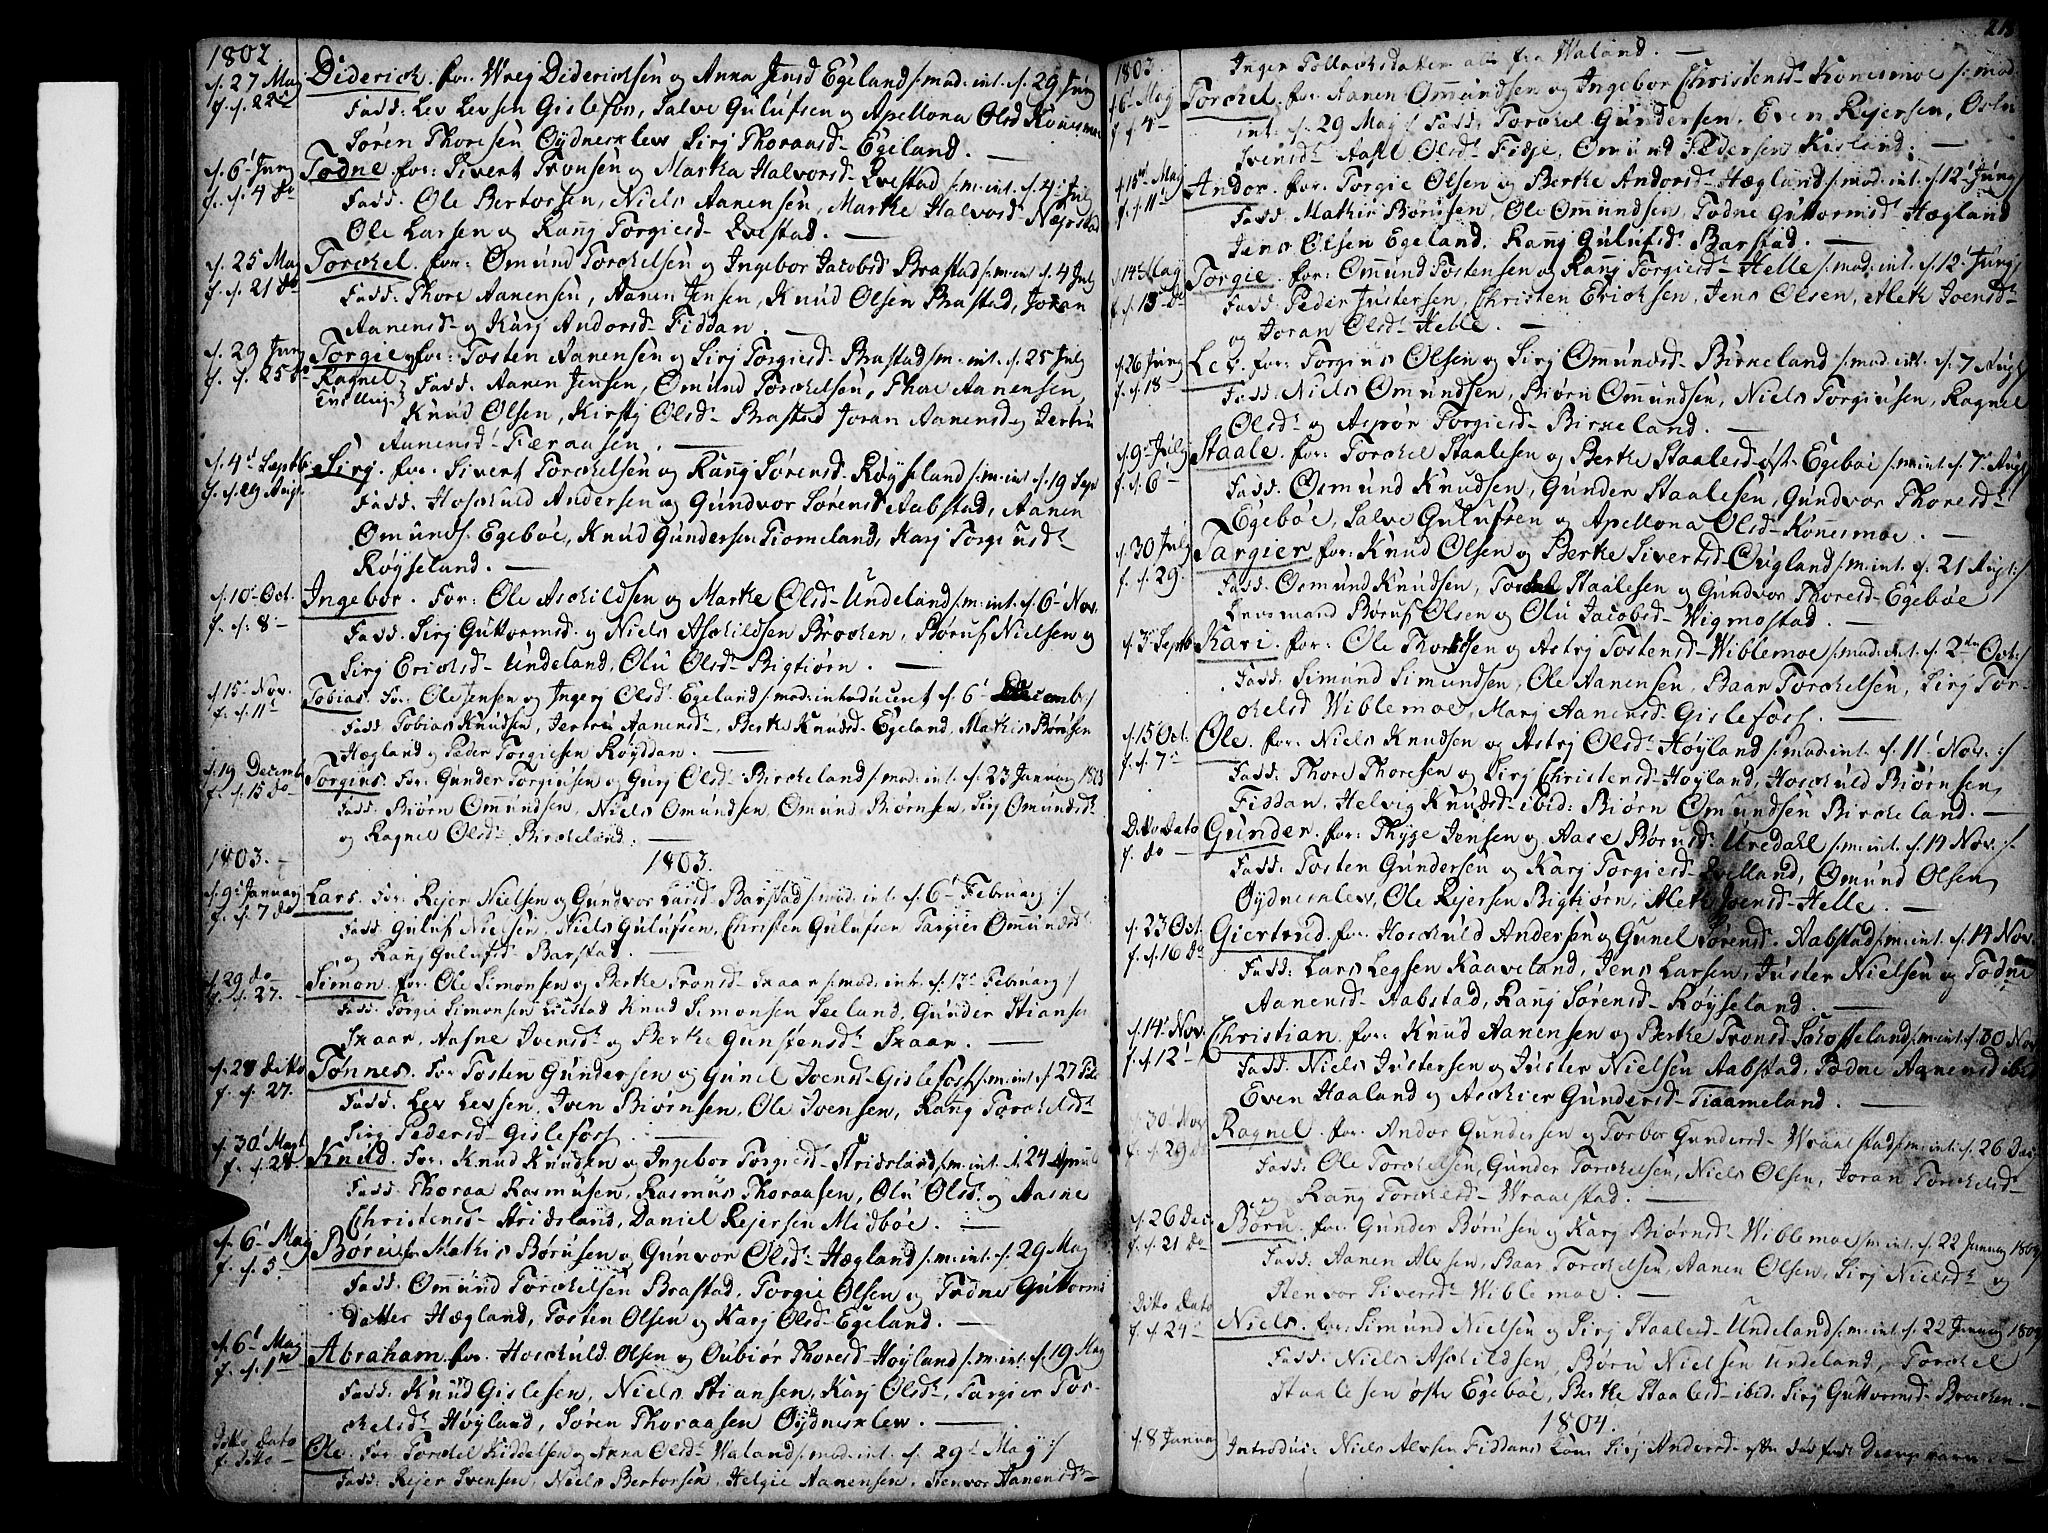 1802
d. 27 Maj Diderick. for: Wrej Diderichsen og Anna Jensd. Egeland /: mod. int. d. 29 Junj
f. d. 22
Fadd: Lev Levsen Gislefos, Salve Gulufsen og Apellona Olsd. Konesmoe
Søren Thoresen Øydnesklev Sirj Thoraasd. Egeland. —
d. 6t Junj Todne for: Sivert Tronsen og Marthe Halvorsd. Qvestad /: m: int. d. 4 Julj
f. d. 4 do
Fadd: Ole Bertorsen, Niels Aanensen, Marthe Halvorsd. Nægestad
Ole Larsen og Ranj Torgiersd. Qvestad. —
d. 25 Maj Torchel. for: Omund Torchelsen og Ingebor Jacobsd. Brastad /: m: int. d. 4 Julj
f. d. 21 do
Fadd: Thore Aanensen, Aanen Jensen, Knud Olsen Brastad, Joran
Aanensd. og Karj Andorsd. Fiddan. —
d. 29 Junj Torgie og for: Tosten Aanensen og Sirj Torgiersd. Brastad /: m: int. d. 25 Julj
f. d. 25 do Ragnel Tvillinge Fadd: Aanen Jensen, Omund Torchelsen, Thore Aanensen,
Knud Olsen, Kirstj Olsd. Brastad Joran Aanensd. og Jertru
Aanensd. Færaasen. —
d. 4d Septb. Sirj. for: Sivert Torchelsen og Ranj Sørensd. Røyseland /: m: int. d. 19 Sept
f. d. 29 Augt.
Fadd: Hoschuld Andersen og Gundvor Sørensd. Aabstad, Aanen
Omunds. Egebøe, Knud Gundersen Tiomeland, Karj Torgiusd.
Røyseland. —
d. 10 Oct. Ingebor. for: Ole Aschildsen og Marthe Olsd. Undeland /: m: int. d. 6 Nov.
f. d. 8 —
Fadd: Sirj Guttormsd. og Niels Aschildsen Brochen, Børu Nielsen og
Sirj Erichsd. Undeland, Olu Olsd. Bigtiørn. —
d. 15 Nov. Tobias. for: Ole Jensen og Ingerj Olsd. Egeland /: mod: introduceret d. 6t Decemb:/
f. d. 11t
Fadd: Tobias Knudsen, Jertru Aanensd., Berthe Knudsd. Egeland, Mathis Børusen
Hægland og Peder Torgiesen Røyddan. —
d. 19 Decemb Torgius. for: Gunder Torgiusen og Gurj Olsd. Birckeland /: mod: int. d. 23 Januarj 1803
f. d. 15 do
Fadd: Biørn Omundsen, Niels Omundsen, Omund Biørnsen, Sirj Omundsd.
og Ragnel Olsd. Birckeland. —
1803. — 1803.
d. 9 Januarj Lars. for: Rejer Nielsen og Gundvor Larsd. Barstad /: mod. int. d. 6t Februarj :/
f. d. 7 do
Fadd: Guluf Nielsen, Niels Gulufsen, Christen Gulufsen Targier Omundsd.
og Ranj Gulufsd. Barstad. —
d. 29 do Simon. for: Ole Simonsen og Berthe Tronsd. Skaar /: mod: int. d. 13 Februarj /
f. d. 27.
Fadd: Torgie Simonsen Knud Simonsen Sæland, Gunder Stians.
Skaar, Aasne Ivensd. og Berthe Gunstensd. Skaar. —
d. 28 ditto Tønnes. for: Tosten Gundersen og Gunel Joensd. Gislefoss /: m: int. d. 27 Feb
f. d. 27.
Fadd: Lev Levsen, Iven Biørnsen, Ole Ivensen, Ranj Torchelsd.
Sirj Pedersd. Gislefoss. —
d. 30t Mart Knud. for: Knud Knudsen og Ingebor Torgiesd. Stridsland /: m: int. d. 24 April
f. d. 28.
Fadd: Thoraa Rasmusen, Rasmus Thoraasen, Olu Olsd. og Aasne
Christensd. Stridsland, Daniel Rejersen Midbøe. —
d. 6t Maj Børu for Mathis Børusen og Gunvor Olsd. Hægland /: m: int. d. 29 Maj
f. d. 5
Fadd: Omund Torchelsen Brastad, Torgie Olsen og Todne Guttorms
Datter Hægland, Tosten Olsen og Karj Olsd. Egeland. —
d. 6t Maj Abraham for: Hoschuld Olsen og Oubiør Thoresd. Høyland /: m: int. d. 19 Maj
f. d. 1ste
Fadd: Knud Gislesen, Niels Stiansen, Karj Olsd., Targier Tor-
chelsd. Høyland, Søren Thoraasen Øydnesklev. —
Ditto Dato Ole. for: Torchel Kiddelsen og Anna Olsd. Waland /: mod: int. d. 29t Maj :/
f. ditto —
Fadd: Rejer Ivensen, Niels Bertorsen, Helgie Aanensen, Stenvor Aanensd.
1803. Inger Tollachsdatter alle fra Waland. —
d. 6t Maj Torchel. for: Aanen Omundsen og Ingebor Christensd. Konesmoe /: mod.
f. d. 4 —
int. d. 29 Maj / Fadd: Torchel Gundersen, Even Rejersen, Oslu
Ivensd. Aasel Olsd. Fidje, Omund Pedersen Kisland. —
d. 15 Maj Andor. for: Torgie Olsen og Berthe Andorsd. Hægland /: mod: int. d. 12t Junj
f. d. 11t
Fadd: Mathis Børusen, Ole Omundsen, Todne Guttormsd. Hægland
Jens Olsen Egeland, Ranj Gulufsd. Barstad. —
d. 14 Maj Torgie. for: Omund Tostensen og Ranj Torgiersd. Helle /: mod: int. d. 12 Junj
f. d. 13 do
Fadd: Peder Justersen, Christen Erichsen, Jens Olsen, Aleth Joensd.
og Joran Olsd. Helle. —
d. 26 Junj Lev. for: Torgius Olsen og Sirj Omundsd. Birkeland /: mod: int. d. 7 Augt
f. d. 18
Fadd: Niels Omundsen, Biørn Omundsen, Niels Torgiusen, Ragnel
Olsd. og Aspør Torgiesd. Birkeland. —
d. 9 Julj Staale. for: Torchel Staalesen og Berthe Staalesd. øst Egebøe /: m: int. d. 7 Augt
f. d. 6 —
Fadd: Osmund Knudsen, Gunder Staalesen, Gundvor Thoresd.
Egebøe, Salve Gulufsen og Apellona Olsd. Konesmoe. —
d. 30 Julj Targier. for: Knud Olsen og Berthe Sivertsd. Ougland /: m: int. d. 21 Augt:/
f. d. 29.
Fadd: Osmund Knudsen, Torchel Staalesen og Gundvor Thoresd. Egebøe
Børuf Olsen og Olu Jacobsd. Wigmostad. —
d. 3 Septb Kari. for: Ole Thorsen og Astrj Tostensd. Wiblemoe /: mod. int. d. 2den Oct:/
Fadd: Simund Simundsen, Ole Aanensen, Baar Torchelsen, Sirj Tor-
chelsd Wiblemoe, Marj Aanensd. Gislefoss. —
d. 15 Oct. Ole. for: Niels Knudsen og Astrj Olsd. Høyland /: mod: int. d. 11t Nov. :/
f. d. 7
Fadd: Thore Thoresen og Sirj Christensd. Høyland, Hoschuld Biørnsen
Fiddan, Helvig Knudsd. ibid: Biørn Omundsen Birckeland. —
Ditto Dato Gunder. for: Thyge Jensen og Aase Børusd. Uredahl /: m: int. d. 14 Nov. :/
f. do —
Fadd: Tosten Gundersen og Karj Torgiersd. Qvelland, Omund Olsen
Øydnesklev, Ole Rejersen Bigtiørn, Aleth Joensd. Helle. —
d. 23 Oct. Giertrud. for: Hoschuld Andersen og Gunel Sørensd. Aabstad /: m: int. d. 14 Nov.
f. d. 16 do
Fadd: Lars Legsen Kaaveland, Jens Larsen, Juster Nielsen og Todne
Aanensd. Aabstad, Ranj Sørensd. Røyseland. —
d. 14 Nov. Christian. for: Knud Aanensen og Berthe Tronsd. /: m: int. d. 30 Nov
f. d. 12t
Fadd: Niels Justersen og Juster Nielsen Aabstad, Todne Aanensd ibid
Even Haaland og Aschier Gundersd. Tiaameland. —
30 Nov Ragnel. for: Andor Gundersen og Torbor Gundersd. Wraalstad /: m: int: d. 26 Dec
d. 29 do
Fadd: Ole Torchelsen, Gunder Torchelsen, Niels Olsen, Joran Torchelsd.
og Ranj Torchelsd. Wraalstad. —
d. 26 Dec. Børu. for: Gunder Børusen og Karj Biørnsd. Wiblemoe /: m: int. d. 22 Januarj 1804
f. d. 21 do
Fadd: Aanen Alvsen, Baar Torchelsen, Aanen Olsen, Sirj Nielsd. og
Stenvor Siversd. Wiblemoe. —
Ditto Dato Niels. for: Simund Nielsen og Sirj Staalesd. Undeland /: m: int. d. 22 Januarj 1804
f. d. 24
Fadd: Niels Aschildsen, Børu Nielsen Undeland, Torchel
Staalesen øste Egebøe, Berthe Staalesd. ibid. Sirj Guttormsd. Brochen. —
1804.
d. 8 Januarj Introduc: Niels Alvsen Fiddans Kone Sirj Andorsd. Drengebarn. —